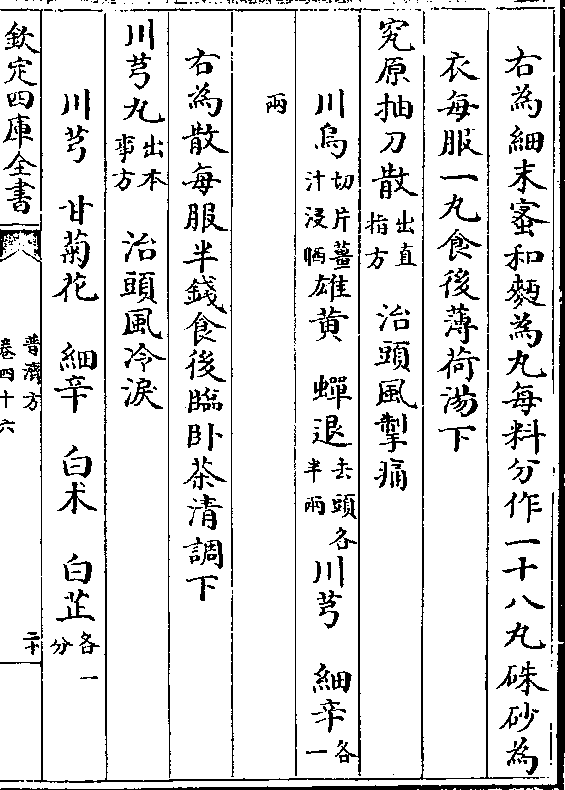 右為細末蜜和麫為丸每料分作一十八丸硃砂為
衣每服一丸食後薄荷湯下
究原抽刀散出直指方　治頭風掣痛
川烏切片薑汁浸晒雄黄　蟬退去頭各半兩川芎　細辛各一
兩
右為散每服半錢食後臨卧茶清調下
川芎丸出本事方　治頭風冷淚
川芎　甘菊花　細辛　白术　白芷各一分
欽定四庫全書
普濟方
卷四十六
二十